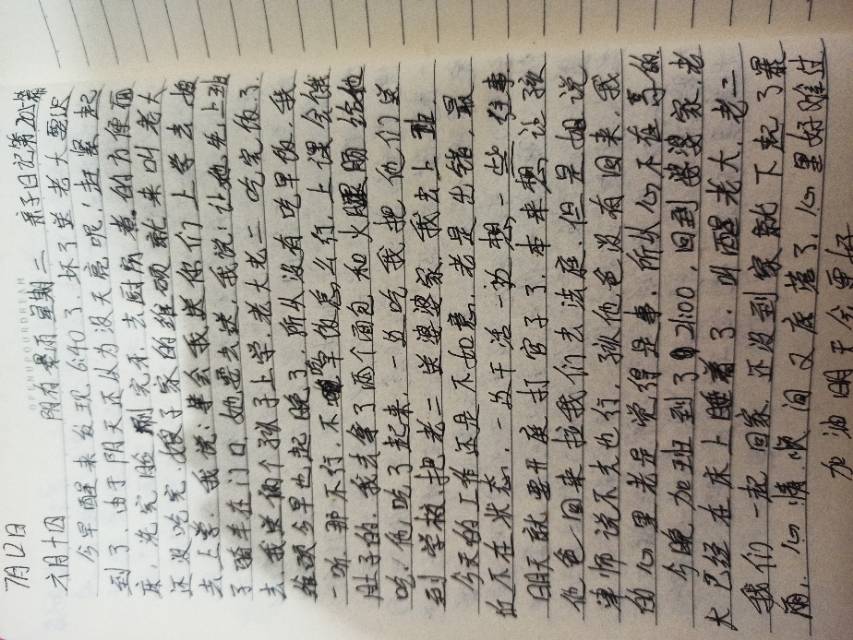 7月12日
六月十四 阴有暴雨 星期二 亲子日记第202篇
今早醒来发现6:40了,坏了送老大要迟
到了,由于阴天还以为没天亮呢!赶紧起
床,洗完脸刷完牙去厨房煮的方便面
还没吃完,嫂子家的维硕就来叫老大
去上学,我说:等会我送你们上学去,嫂
子骑车在门口,她要去送,我说:让她先上班
去,我送俩个孩子上学,老大老二吃完饭了
维硕今早也起晚了,所以没有吃早饭,我
一听,那不行,不吃早饭怎么行,上课会饿
肚子的,我去拿了两个面包和火腿肠给他
吃,他吃了起来,一边吃我把他们送
到学校,把老二送婆婆家,我去上班
今天的工作还是不如意,老是出错,最
近不在状态,一边干活一边想一些往事
明天就要开庭打官子了,本来想让孩
他爸回来找我们去法庭,但是姐说
律师说不去也行,孩他爸没有回来,我
的心里老是觉得是事,所以心不在焉的
今晚加班到了21:00,回到婆婆家,老
大已经在床上睡着了,叫醒老大,老二
我们一起回家,还没到家就下起了暴
雨,心情顺间又底落了,心里好难过
加油明天会更好